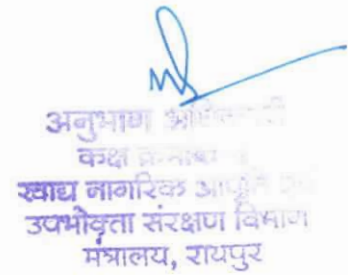 अनुभाग
कक्ष क्रमांक
खाद्य नागरिक आपूर्ति एवं
उपभोक्ता संरक्षण विभाग
मंत्रालय, रायपुर